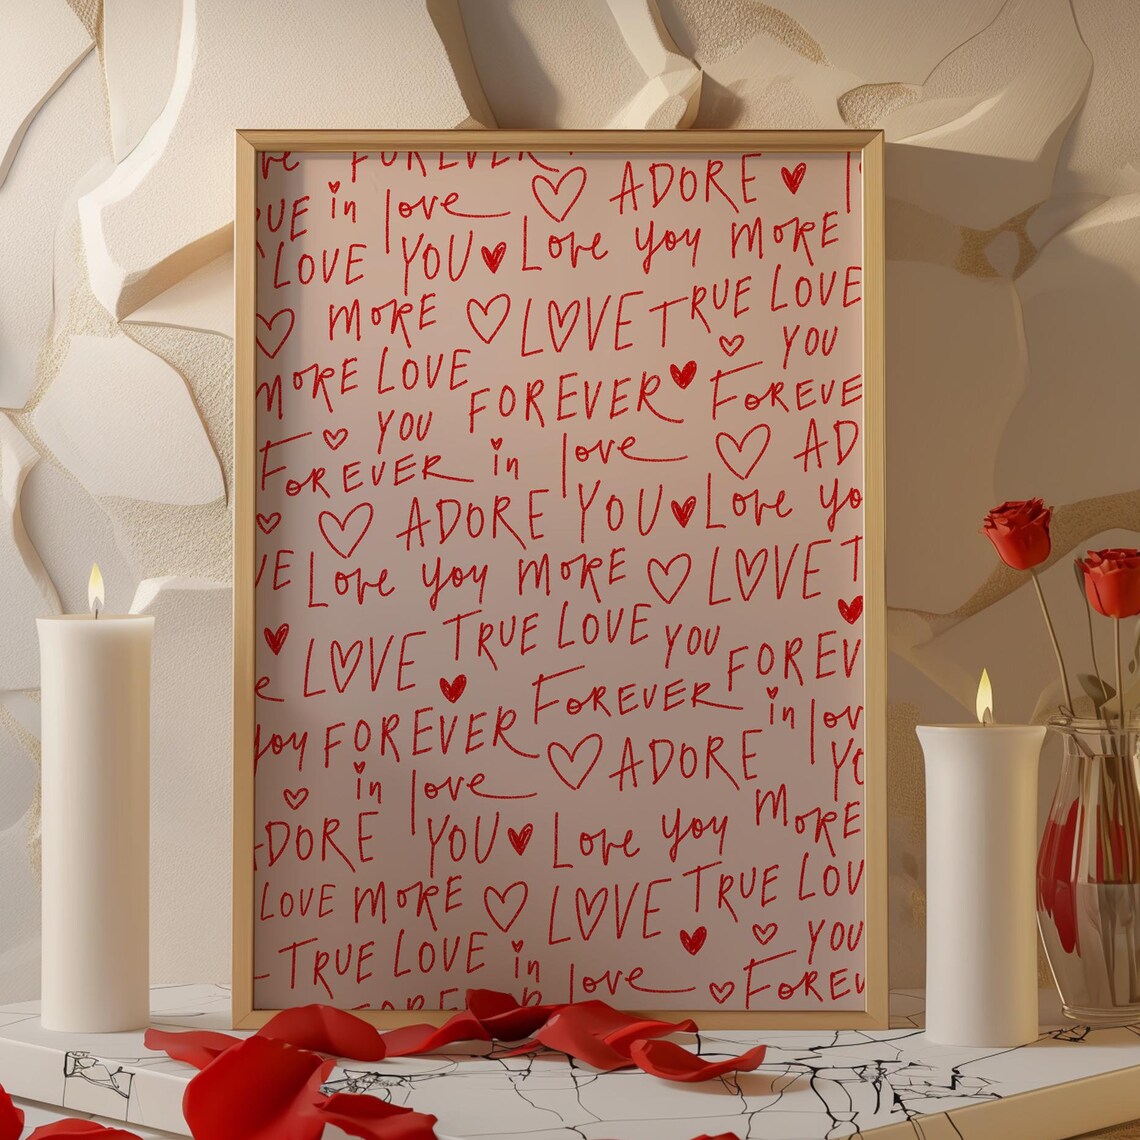 FOREVER
TRUE in love ADORE
LOVE YOU Love you MORE
MORE LOVE TRUE LOVE
MORE LOVE FOREVER YOU
YOU FOREVE
FOREVER in love AD
ADORE YOU Love yo
VE Love you MORE LOVE T
LOVE TRUE LOVE YOU FOREV
you FOREVER FOREVER in lov
in love ADORE YO
DORE YOU Love you MORE
LOVE MORE LOVE TRUE LOV
TRUE LOVE in love YOU
FOREV